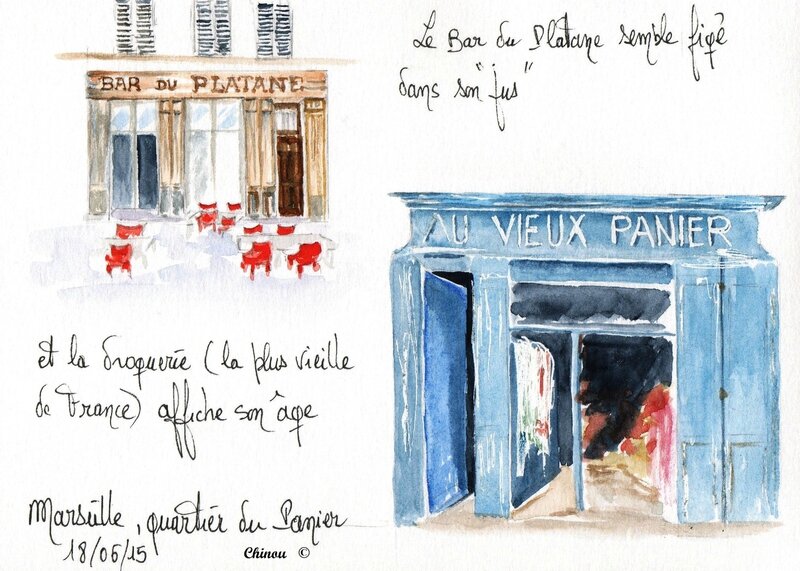 Le Bar du Platane semble figé
dans son "jus"
BAR DU PLATANE
AU VIEUX PANIER
et la droguerie (la plus vieille
de France) affiche son âge
Marseille, quartier du Panier
18/06/15
Chinou ©